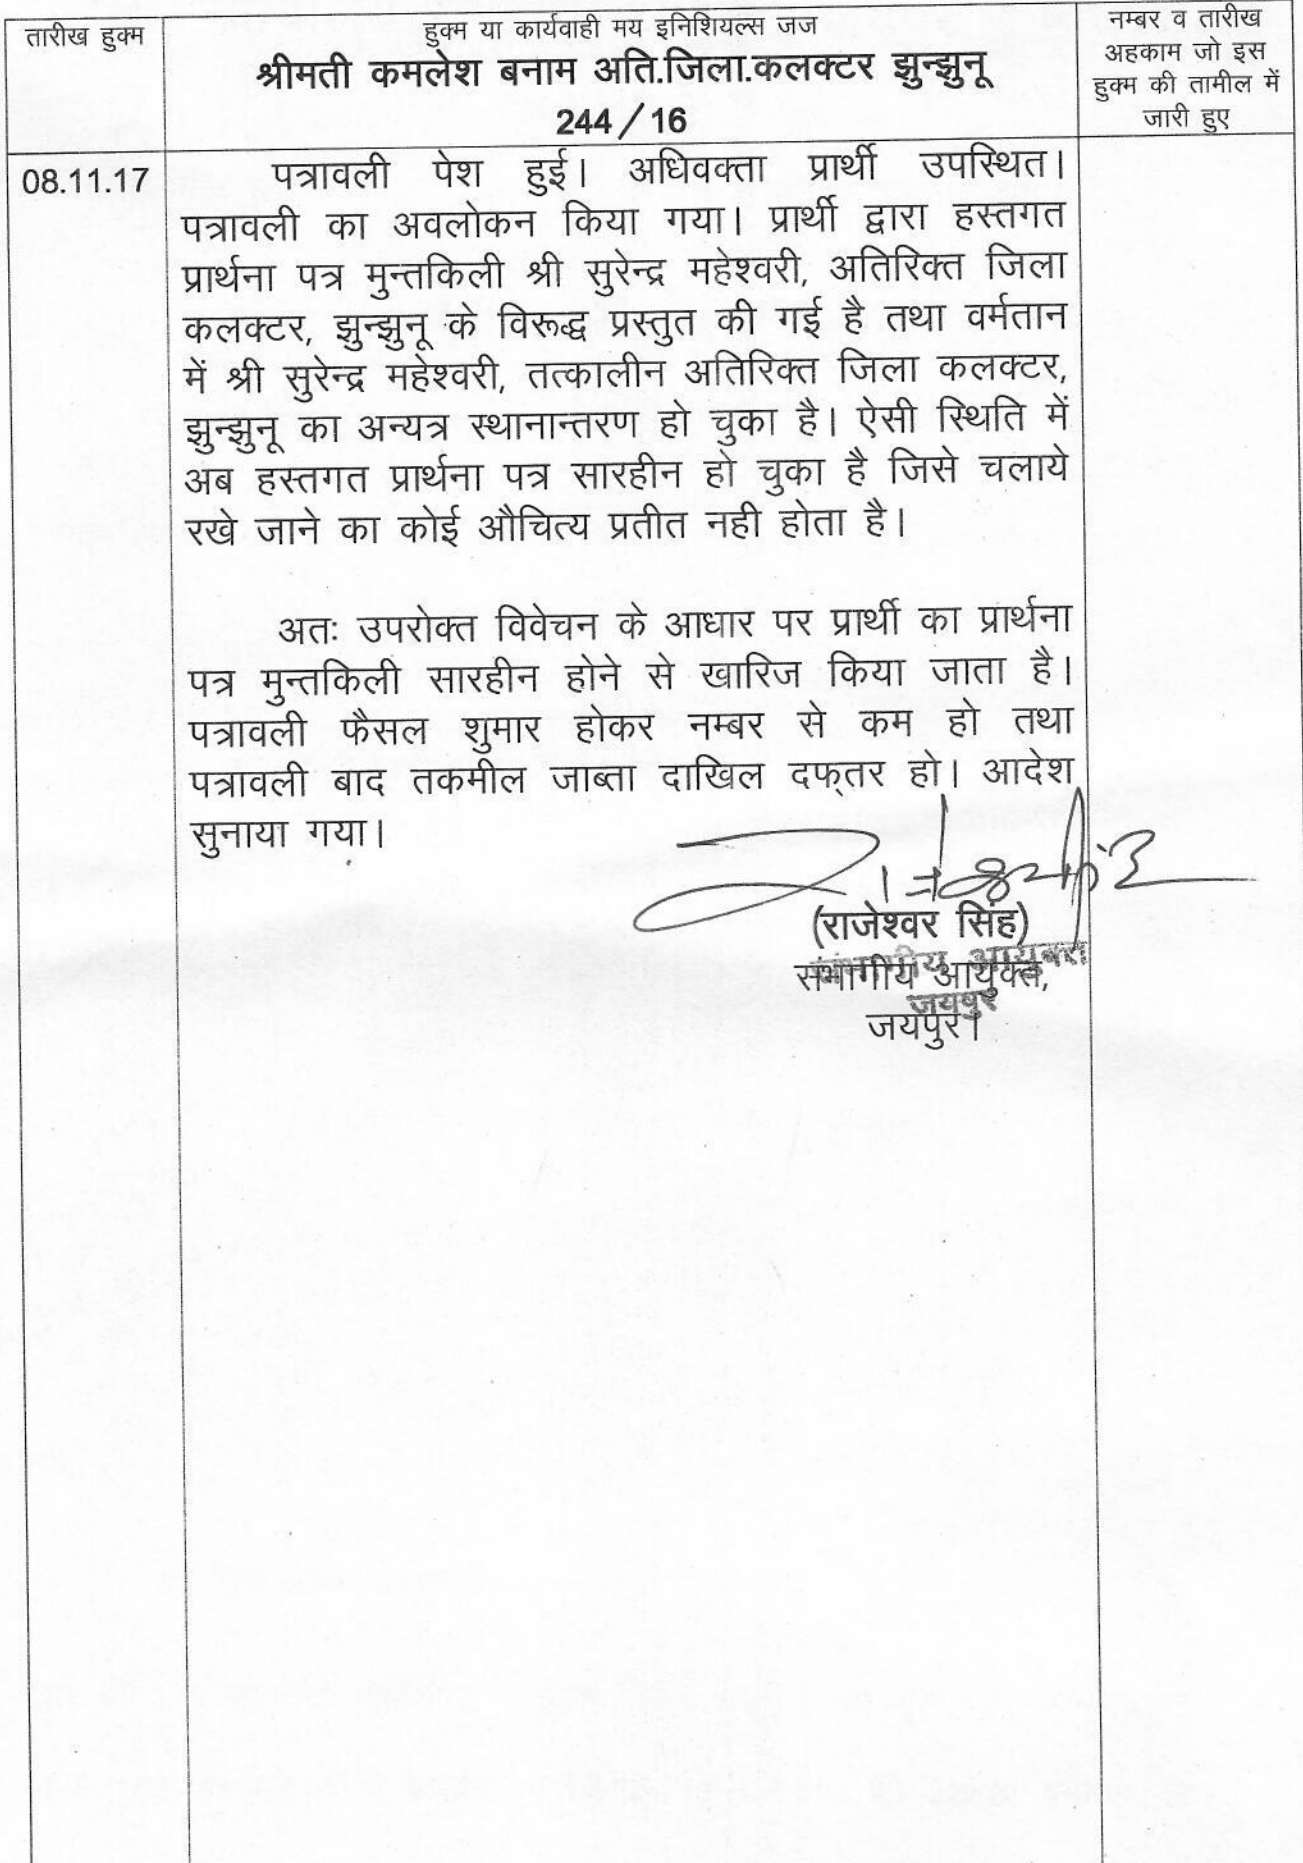 तारीख हुक्म
हुक्म या कार्यवाही मय इनिशियल्स जज
श्रीमती कमलेश बनाम अति.जिला.कलक्टर झुन्झुनू
244/16
नम्बर व तारीख
अहकाम जो इस
हुक्म की तामील में
जारी हुए
08.11.17
पत्रावली पेश हुई। अधिवक्ता प्रार्थी उपस्थित।
पत्रावली का अवलोकन किया गया। प्रार्थी द्वारा हस्तगत
प्रार्थना पत्र मुन्तकिली श्री सुरेन्द्र महेश्वरी, अतिरिक्त जिला
कलक्टर, झुन्झुनू के विरूद्ध प्रस्तुत की गई है तथा वर्मतान
में श्री सुरेन्द्र महेश्वरी, तत्कालीन अतिरिक्त जिला कलक्टर,
झुन्झुनू का अन्यत्र स्थानान्तरण हो चुका है। ऐसी स्थिति में
अब हस्तगत प्रार्थना पत्र सारहीन हो चुका है जिसे चलाये
रखे जाने का कोई औचित्य प्रतीत नही होता है।
अतः उपरोक्त विवेचन के आधार पर प्रार्थी का प्रार्थना
पत्र मुन्तकिली सारहीन होने से खारिज किया जाता है।
पत्रावली फैसल शुमार होकर नम्बर से कम हो तथा
पत्रावली बाद तकमील जाब्ता दाखिल दफ्तर हो। आदेश
सुनाया गया।
(राजेश्वर सिंह)
संभागीय आयुक्त
संभागीय आयुक्त,
जयपुर
जयपुर।